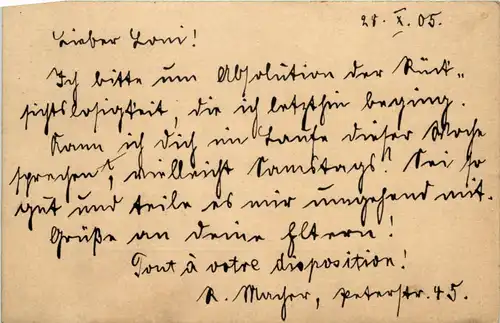 28. X. 05.
Lieber Toni!
Ich bitte um Absolution der Rück-
sichtslosigkeit, die ich letzthin beging.
Kann ich Dich im Laufe dieser Woche
sprechen, vielleicht Samstags? Sei so
gut und teile es mir umgehend mit.
Grüße an Deine Eltern!
Tout à votre disposition!
R. Macher, Peterstr. 45.